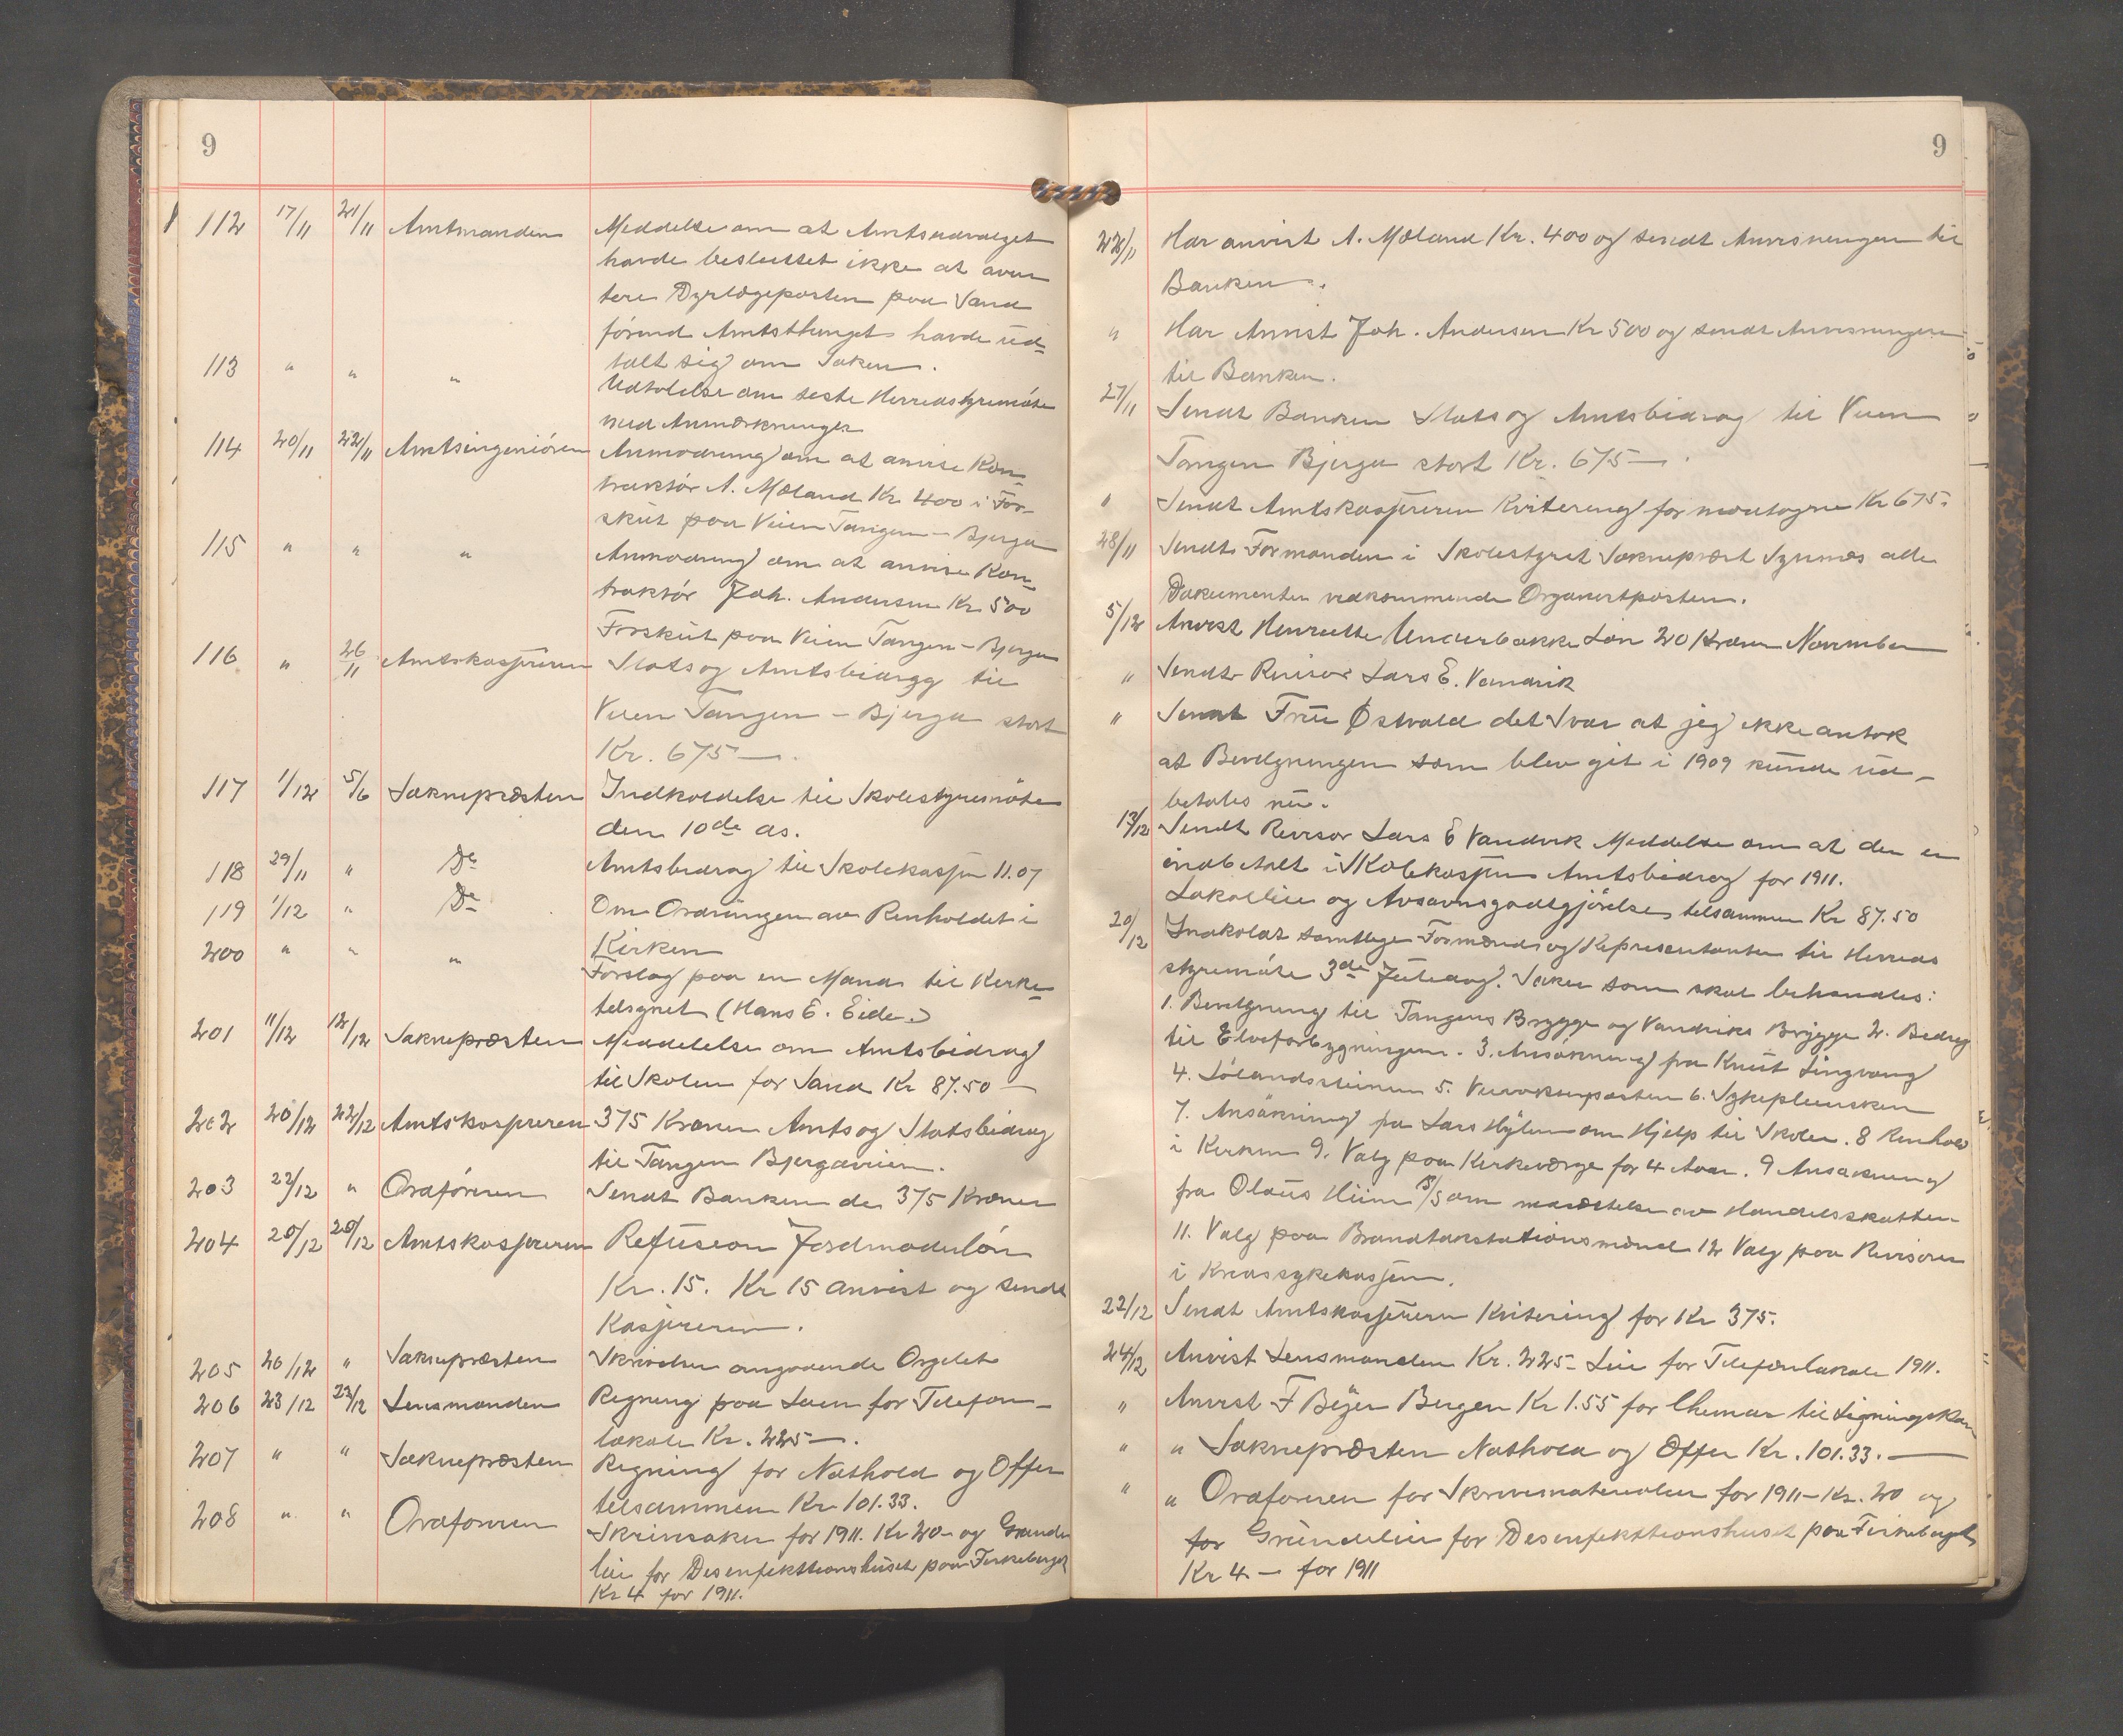 9
112 17/11 21/11 Amtmanden Meddelse om at Amtsudvalget
havde besluttet ikke at aver
tere Dyrlægeposten paa Sand
förend Amtsthinget havde ud-
talt sig om Saken.
113 " " " Udtalelse om seste Herredstyremöte
med Anmærkninger
114 20/11 22/11 Amtsingeniören Anmodning om at anvise Kon-
traktör A. Mæland Kr 400 i For-
skut paa Veien Tangen - Bjerga
115 " " " Anmodning om at anvise Kon-
traktör Joh. Andersen Kr 500
Forskut paa Veien Tangen - Bjerga
116 " 26/11 Amtskasjereren Stats og Amtsbidrag til
Veien Tangen - Bjerga stort
Kr. 675 —.
117 1/12 5/6 Soknepræsten Indkaldelse til Skolestyremöte
den 10de ds.
118 29/11 " Do Amtsbidrag til Skolekassen 11.07
119 1/12 " Do Om Ordningen av Renholdet i
Kirken
200 " " " Forslag paa en Mand til Kirke-
tilsynet (Hans E. Eide.)
201 11/12 12/12 Soknepræsten Meddelelse om Amtsbidrag
til Skolen for Sand Kr 87.50 —
202 20/12 22/12 Amtskasjereren 375 Kroner Amts og Statsbidrag
til Tangen Bjergaveien.
203 22/12 " Ordföreren Sendt Banken de 375 Kroner
204 20/12 28/12 Amtskasjereren Refusion Jordmoderlön
Kr. 15. Kr 15 anvist og sendt
Kasjereren.
205 20/12 " Soknepræsten Skrivelse angaaende Orgelet
206 23/12 23/12 Lensmanden Regning paa Leien for Telefon-
lokale Kr. 225 —.
207 " " Soknepræsten Regning for Nathold og Offer
tilsammen Kr. 101.33.
208 " " Ordforeren Skrivsaker for 1911. Kr 20 - og Grunde
leie for Desenfektionshuset paa Fiskeberget
Kr 4 for 1911.
9
22/11 Har anvist A. Mæland Kr. 400 og sendt Anvisningen til
Banken.
" Har Anvist Joh. Andersen Kr 500 og sendt Anvisningen
til Banken.
27/11 Sendt Banken Stats og Amtsbidrag til Veien
Tangen Bjerga stort Kr. 675 —.
" Sendt Amtskasjereren Kvitering for modtagne Kr 675.
28/11 Sendt Formanden i Skolestyret Soknepræst Synnes alle
Dokumenter vedkommende Organistposten.
5/12 Anvist Henriette Underbakke Lön 20 Kroner November
" Sendt Revisor Lars E. Vandvik
" Sendt Fru Østvold det Svar at jeg ikke antok
at Bevilgningen som blev git i 1909 kunde ud-
betales nu.
13/12 Sendt Revisor Lars E Vandvik Meddelse om at der er
indbetalt i Skolekassen Amtsbidrag for 1911.
Lokalleie og Avsavnsgodtgjörelse tilsammen Kr 87.50
20/12 Indkaldt samtlige Formænd og Representanter til Herreds
styremöte 3de Juledag. Saker som skal behandles:
1. Bevilgning til Tangens Brygge og Vandviks Brygge 2. Bidrag
til Elveforbygningen. 3. Ansökning fra Knut Lingvang
4. Lölandssteinen 5. Veivokterposten 6. Sykepleiersken
7. Ansökning fra Lars Hylen om Hjelp til Skolen. 8 Renhold
i Kirken 9. Valg paa Kirkeværge for 4 Aar. 9 Ansökning
fra Olaus Hiim om nedsettelse av Handelsskatten
11. Valg paa Brandtakstationsmænd 12 Valg paa Revisorer
i Kredssykekassen.
22/12 Sendt Amtskasjereren Kvitering for Kr 375.
24/12 Anvist Lensmanden Kr. 225 - Leie for Telefonlokale 1911.
" Anvist F Beyer Bergen Kr 1.55 for til
" " Soknepræsten Nathold og Offer Kr. 101.33. —
" " Ordforeren for Skrivematerialier for 1911 - Kr. 20 og
for Grundeleie for Desenfektionshuset paa Fiskeberget
Kr 4 — for 1911